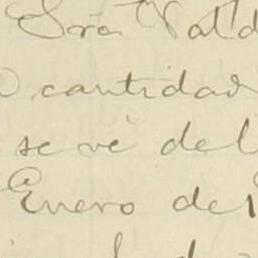 Sra Vald
cantidad
se vé del
Enero del